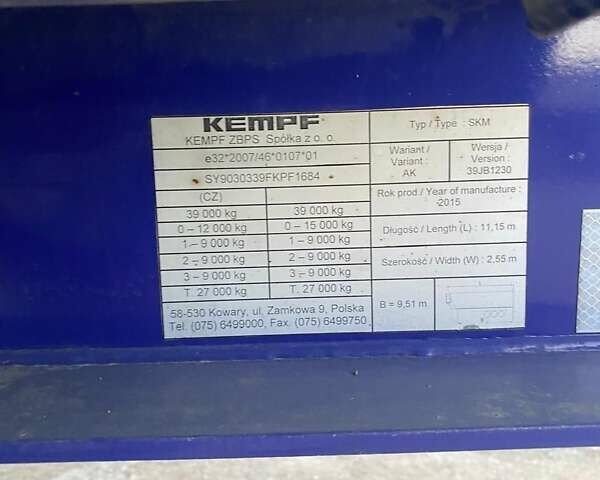 KEMPF
KEMPF ZBPS Spółka z o. o.
e32*2007/46*0107*01
SY9030339FKPF1684
(CZ)
39 000 kg 39 000 kg
0 – 12 000 kg 0 – 15 000 kg
1 – 9 000 kg 1 – 9 000 kg
2 – 9 000 kg 2 – 9 000 kg
3 – 9 000 kg 3 – 9 000 kg
T. 27 000 kg T. 27 000 kg
58-530 Kowary, ul. Zamkowa 9, Polska
Tel. (075) 6499000, Fax. (075) 6499750
Typ / Type : SKM
Wariant /
Variant :
AK
Wersja /
Version :
39JB1230
Rok prod / Year of manufacture :
-2015
Długość / Length (L) : 11,15 m
Szerokość / Width (W) : 2,55 m
B = 9,51 m.